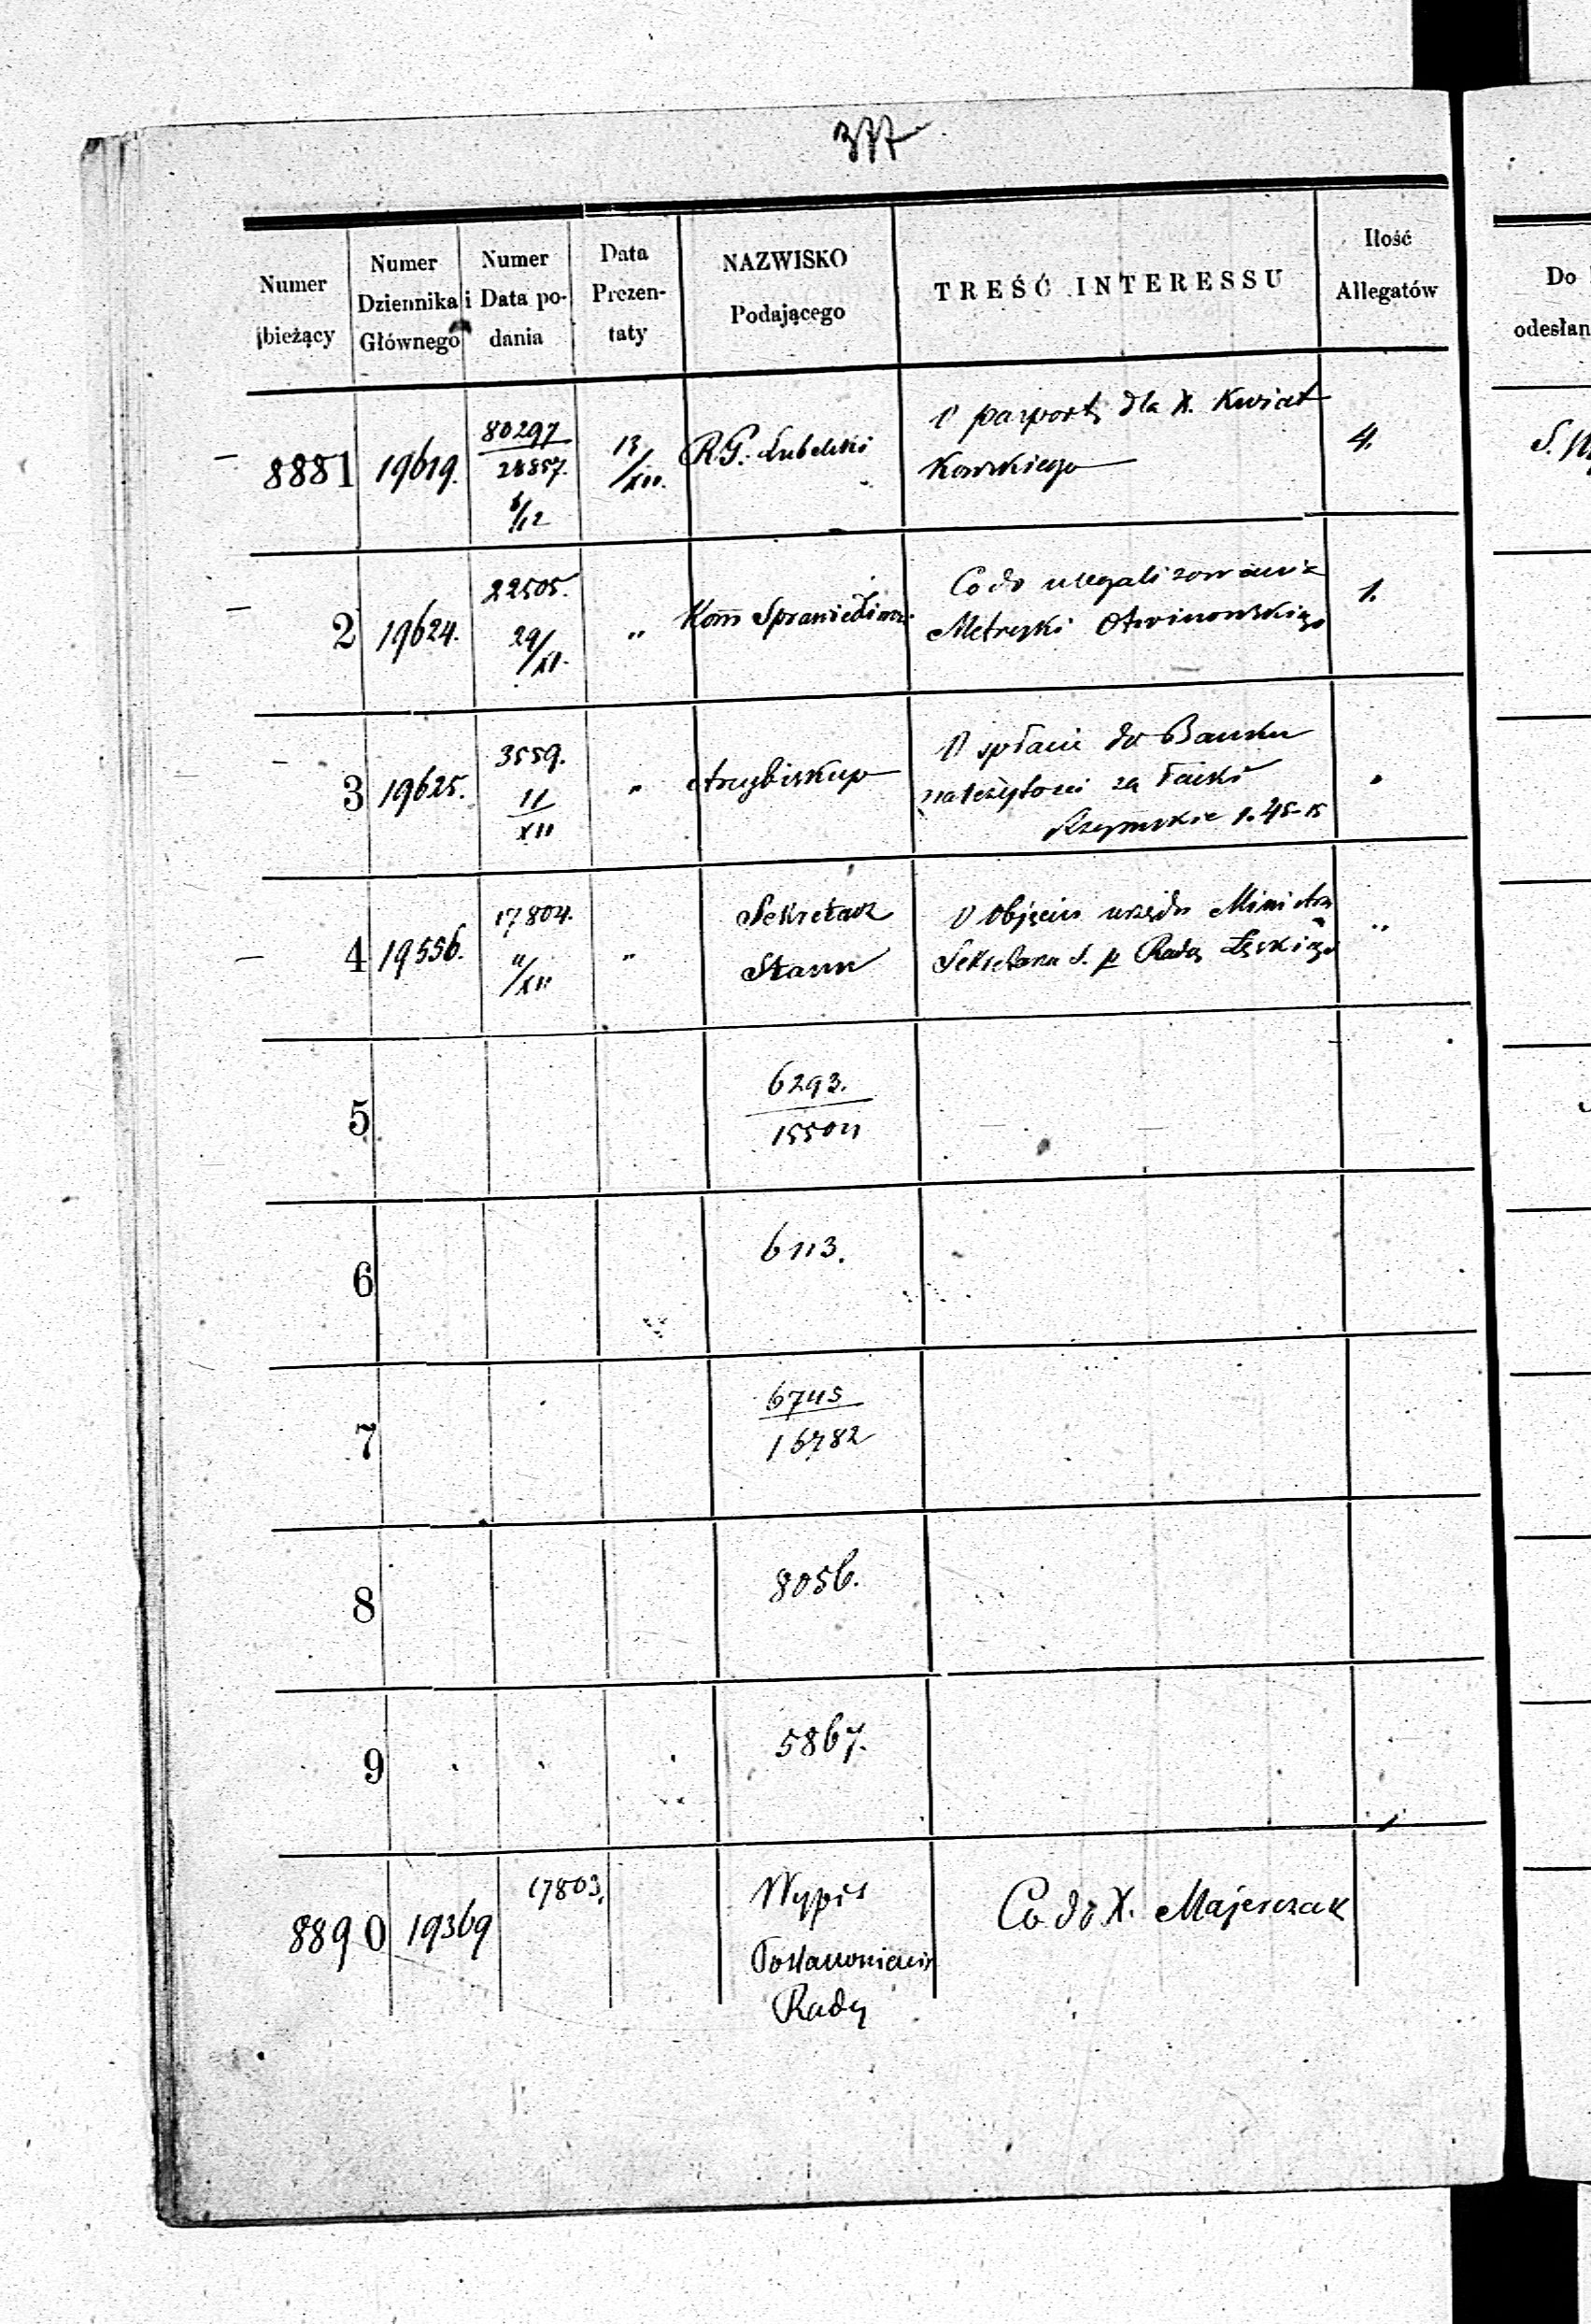 377
Numer bieżący | Numer Dziennika Głównego | Numer i Data podania | Data Prezentaty | NAZWISKO Podającego | TREŚĆ INTERESSU | Ilość Allegatów
8881 | 19619. | 80297 / 28857. /12 | 13/XII. | R.G. Lubelski | O pasport dla X. Kwiatkowskiego | 4.
2 | 19624. | 22505. 29/XI. | " | Kom Sprawiedliwo: | Co do ulegalizowania Metryki Otwinowskiego | 1.
3 | 19625. | 3559. 11/XII | " | Arcybiskup | O spłacie do Banku należytości za Rzymskie 45-15
4 | 19556. | 17804. "/XII | " | Sekretarz Stanu | O objęciu urzędu Ministra Sekretarza S. p Radcę Łęskiego | "
5 | 6293. / 15504
6 | 6113.
7 | 6745 / 16782
8 | 8056.
9 | 5867.
8890 | 19369 | 17803. | Wypis Postanowienia Rady | Co do X. Majerczak
Do
odesłan